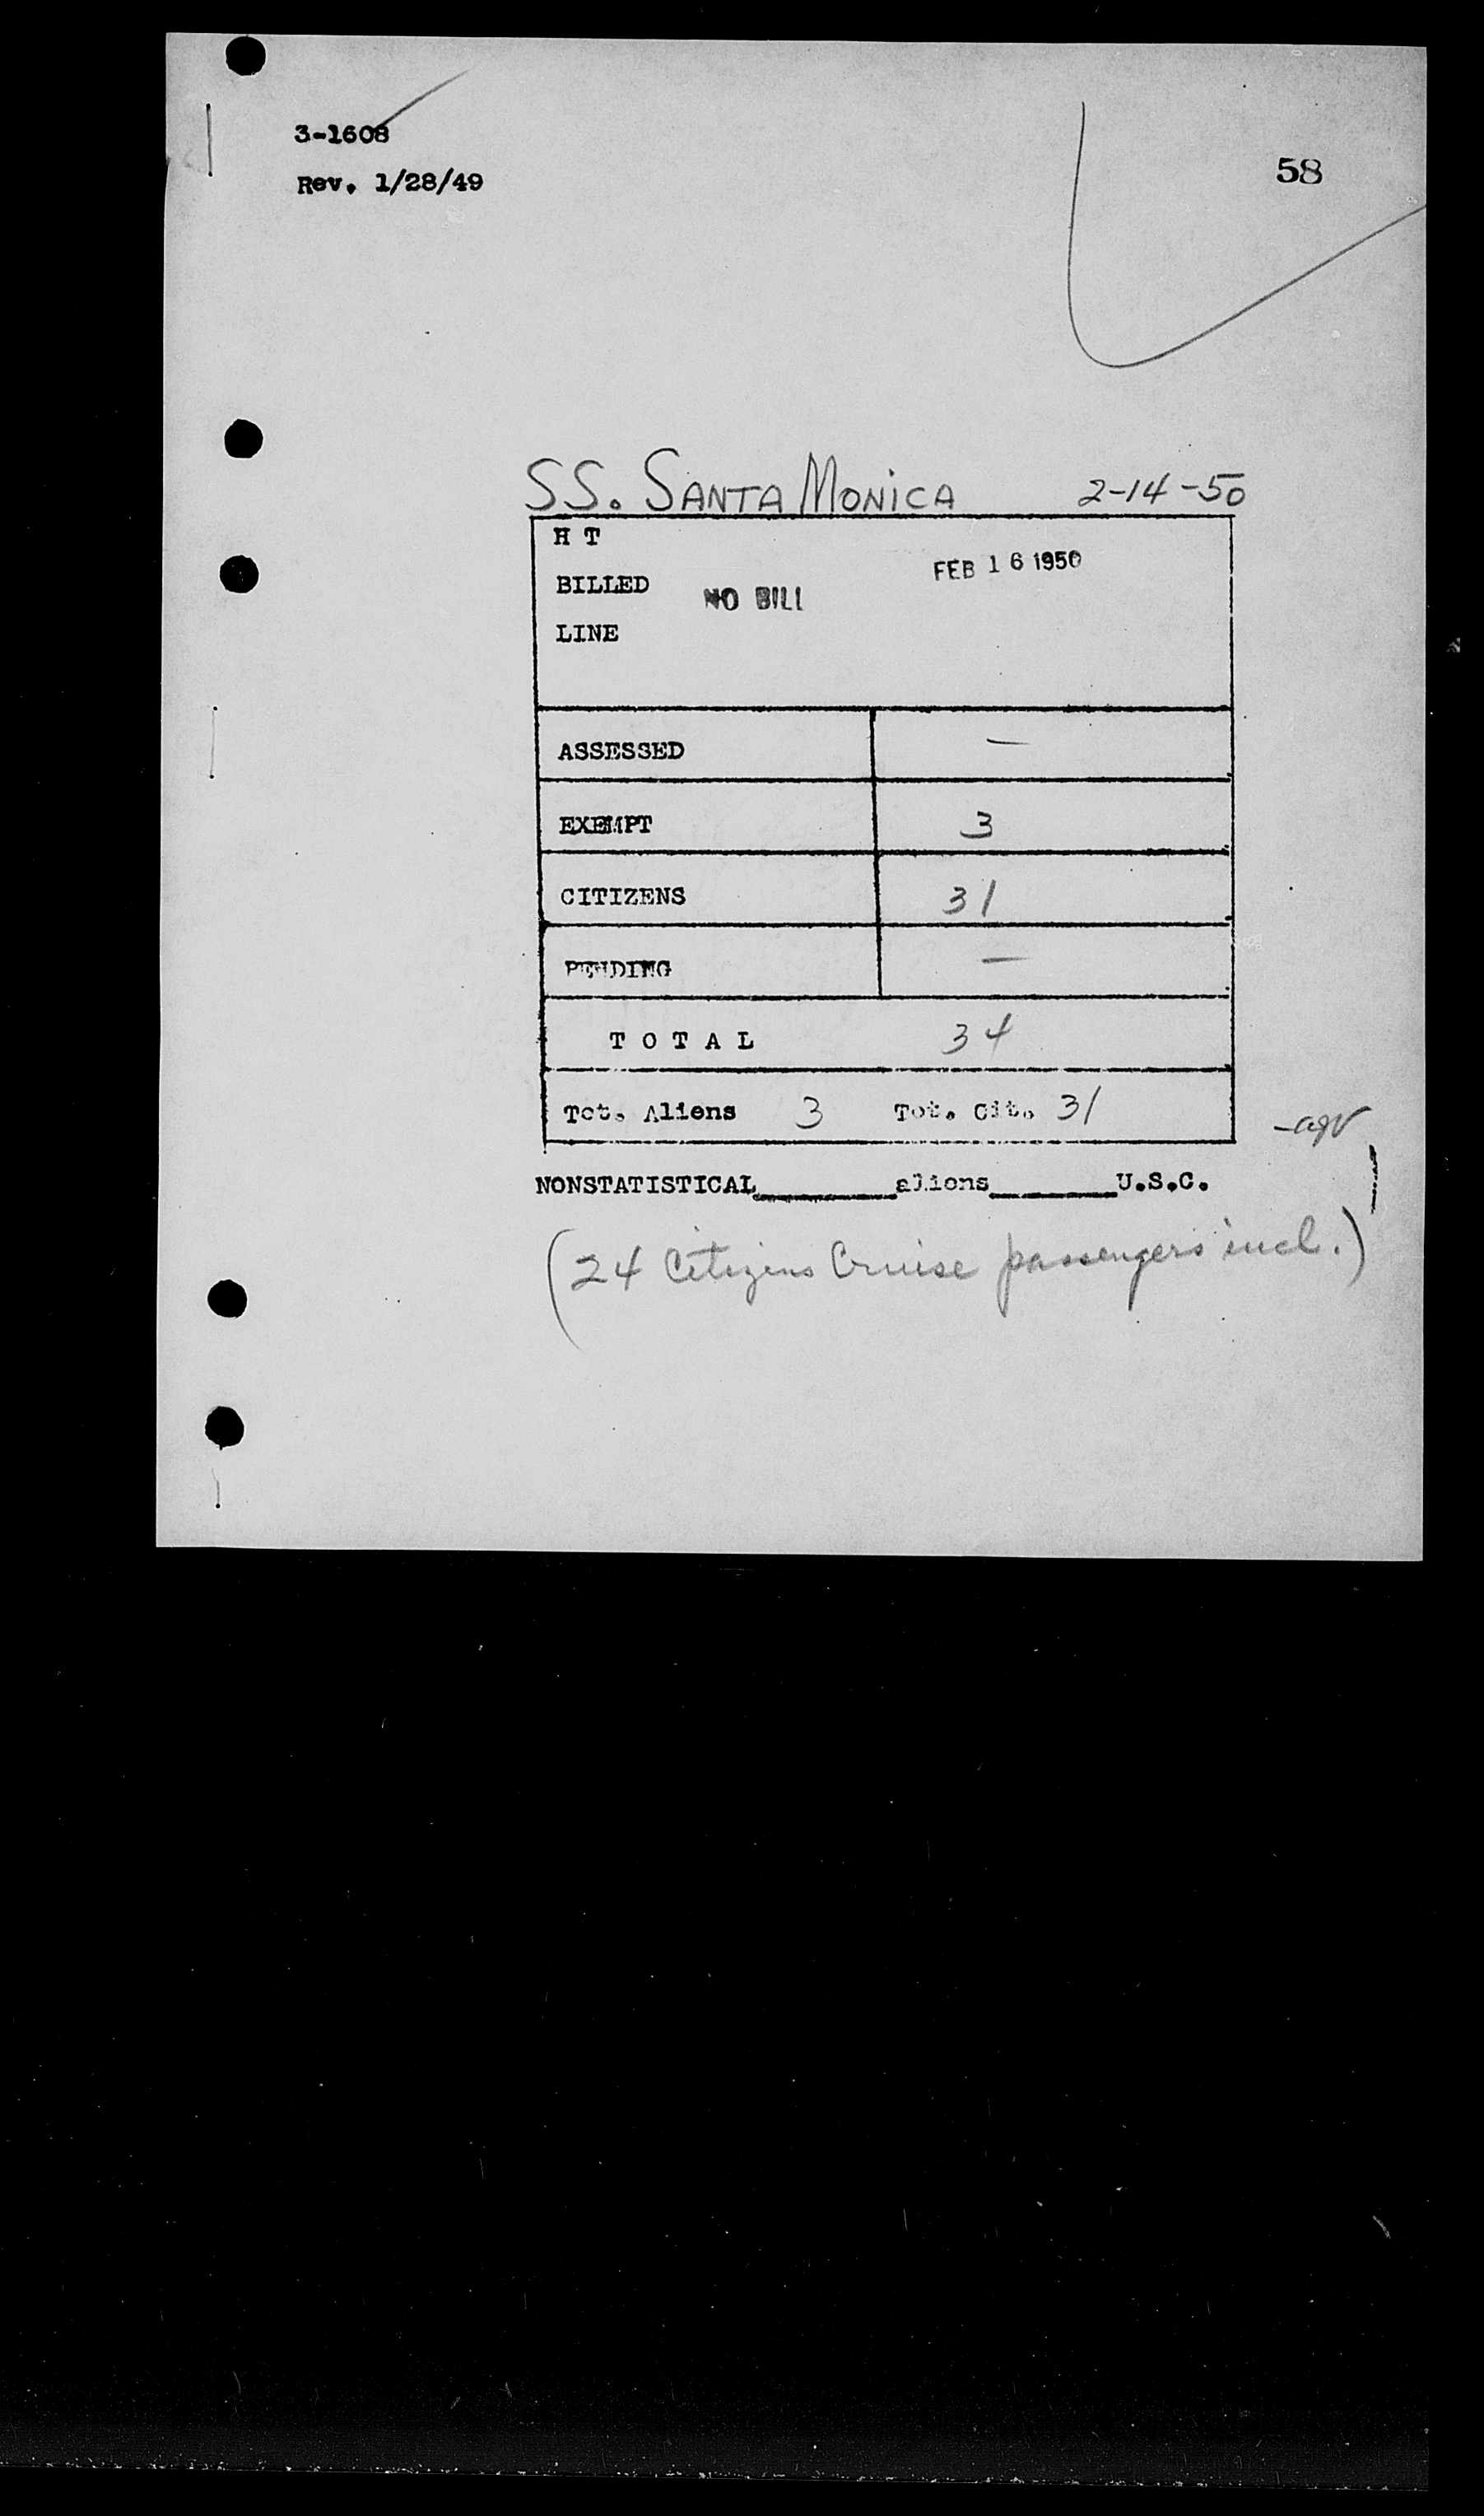 3-1608
Rev. 1/28/49
58
SS. SANTA MONICA 2-14-50
H T
FEB 16 1950
BILLED NO BILL
LINE
ASSESSED —
EXEMPT 3
CITIZENS 31
PENDING —
T O T A L 34
Tot. Aliens 3 Tot. Cit. 31
NONSTATISTICAL________aliens________U.S.C.
(24 Citizens Cruise passengers incl.)